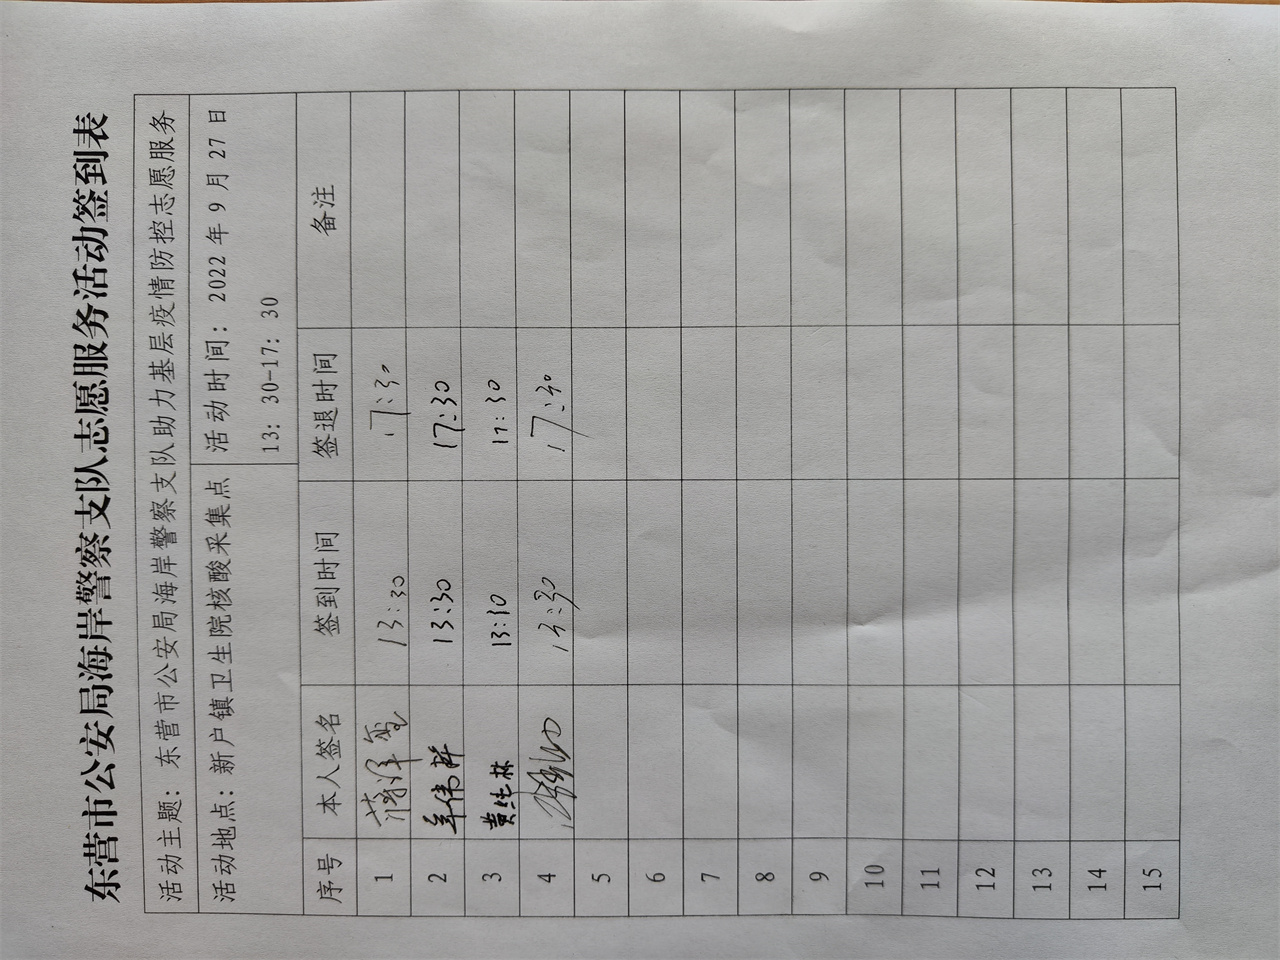 东营市公安局海岸警察支队志愿服务活动签到表
活动主题：东营市公安局海岸警察支队助力基层疫情防控志愿服务
活动地点：新户镇卫生院核酸采集点 活动时间：2022 年 9 月 27 日
13：30-17：30
序号 本人签名 签到时间 签退时间 备注
1 13:30 17:30
2 牟伟群 13:30 17:30
3 黄继林 13:10 17:30
4 13:30 17:30
5
6
7
8
9
10
11
12
13
14
15